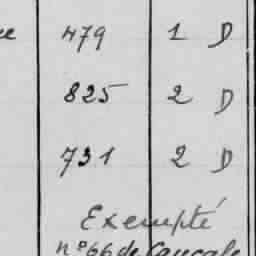 479 1 D
825 2 D
731 2 D
Exempté
nº 66 de